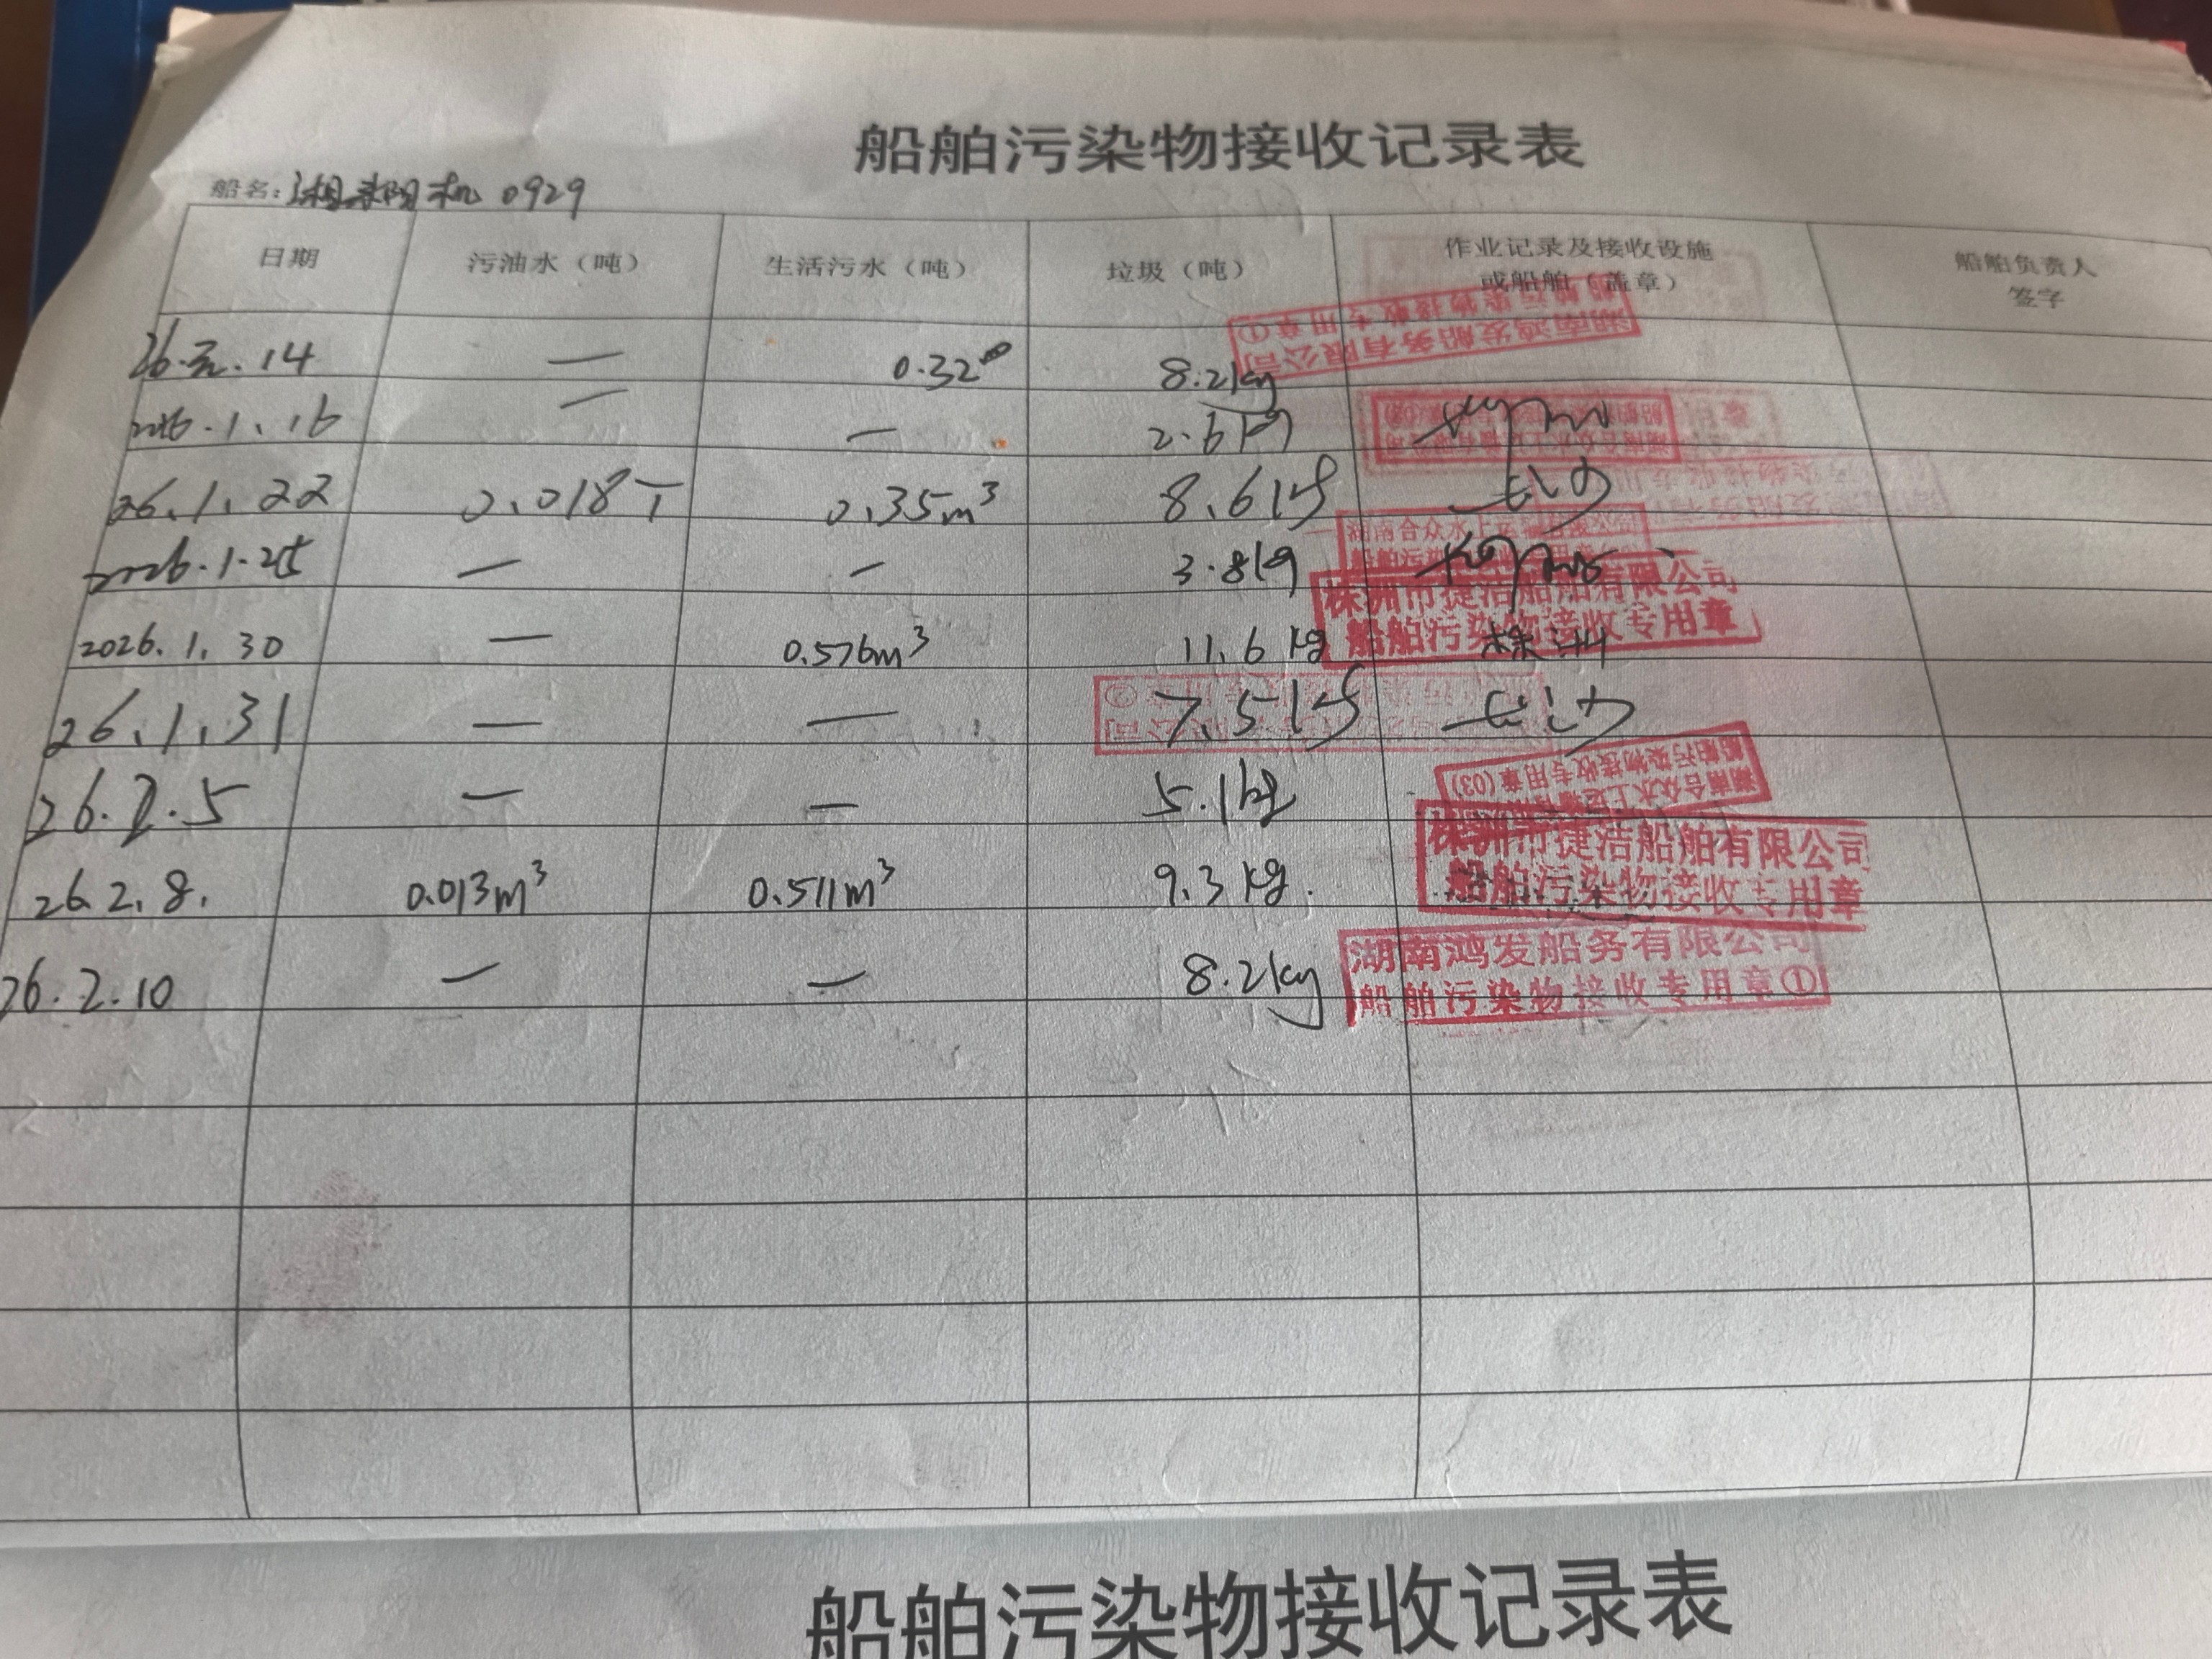 船舶污染物接收记录表
船名: 湘耒阳机 0929
日期 污油水（吨） 生活污水（吨） 垃圾（吨） 作业记录及接收设施或船舶（盖章） 船舶负责人签字
湖南鸿发船务有限公司
船舶污染物接收专用章①
26.元.14 — 0.32 8.2kg
2026.1.16 — — 2.6kg
26.1.22 0.018T 0.35m³ 8.6kg 长沙
2026.1.25 — — 3.8kg
湖南合众水上
船舶污染
株洲市捷洁船舶有限公司
船舶污染物接收专用章
2026.1.30 — 0.576m³ 11.6kg 株洲
26.1.31 — — 7.5kg 长沙
26.2.5 — — 5.1kg
湖南合众水上
船舶污染物接收专用章(03)
26.2.8. 0.013m³ 0.511m³ 9.3kg.
株洲市捷洁船舶有限公司
船舶污染物接收专用章
26.2.10 — — 8.2kg
湖南鸿发船务有限公司
船舶污染物接收专用章①
船舶污染物接收记录表